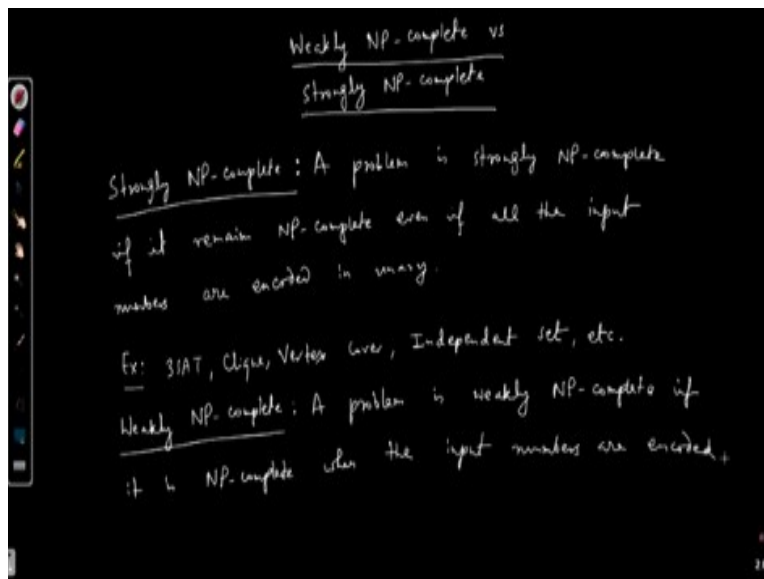 Weakly NP-complete vs
Strongly NP-complete
Strongly NP-complete : A problem is strongly NP-complete
if it remain NP-complete even if all the input
numbers are encoded in unary.
Ex: 3SAT, Clique, Vertex cover, Independent set, etc.
Weakly NP-complete : A problem is weakly NP-complete if
it is NP-complete when the input numbers are encoded